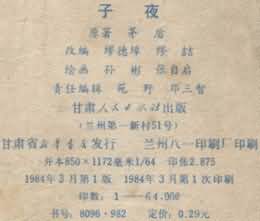 子 夜
原著 茅 盾
改编 缪德璋 缪 喆
绘画 孙 彬 张自启
责任编辑 苑 野 邓三智
甘肃人民出版社出版
(兰州第一新村51号)
甘肃省新华书店发行 兰州八一印刷厂印刷
开本850×1172毫米1/64 印张2.875
1984年3月第1版 1984年3月第1次印刷
印数:1—64,900
书号:8096·982 定价:0.29元